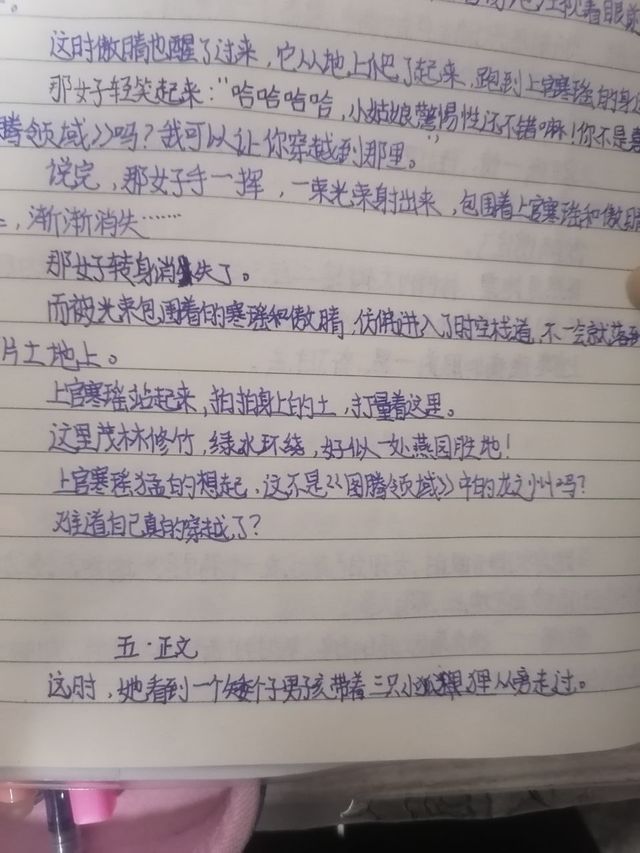 着眼
这时傲腾也醒了过来，它从地上爬了起来，跑到上官寒瑶的身
那女子轻笑起来：“哈哈哈哈，小姑娘警惕性还不错嘛！你不是
腾领域》吗？我可以让你穿越到那里。”
说完，那女子手一挥，一束光束射出来，包围着上官寒瑶和傲
，渐渐消失……
那女子转身消失了。
而被光束包围着的寒瑶和傲腾，仿佛进入了时空栈道，不一会就落到
片土地上。
上官寒瑶站起来，拍拍身上的土，打量着这里。
这里茂林修竹，绿水环绕，好似一处燕园胜地！
上官寒瑶猛的想起，这不是《图腾领域》中的龙之小口吗？
难道自己真的穿越了？
五·正文
这时，她看到一个矮个子男孩带着三只小狐狸从旁走过。